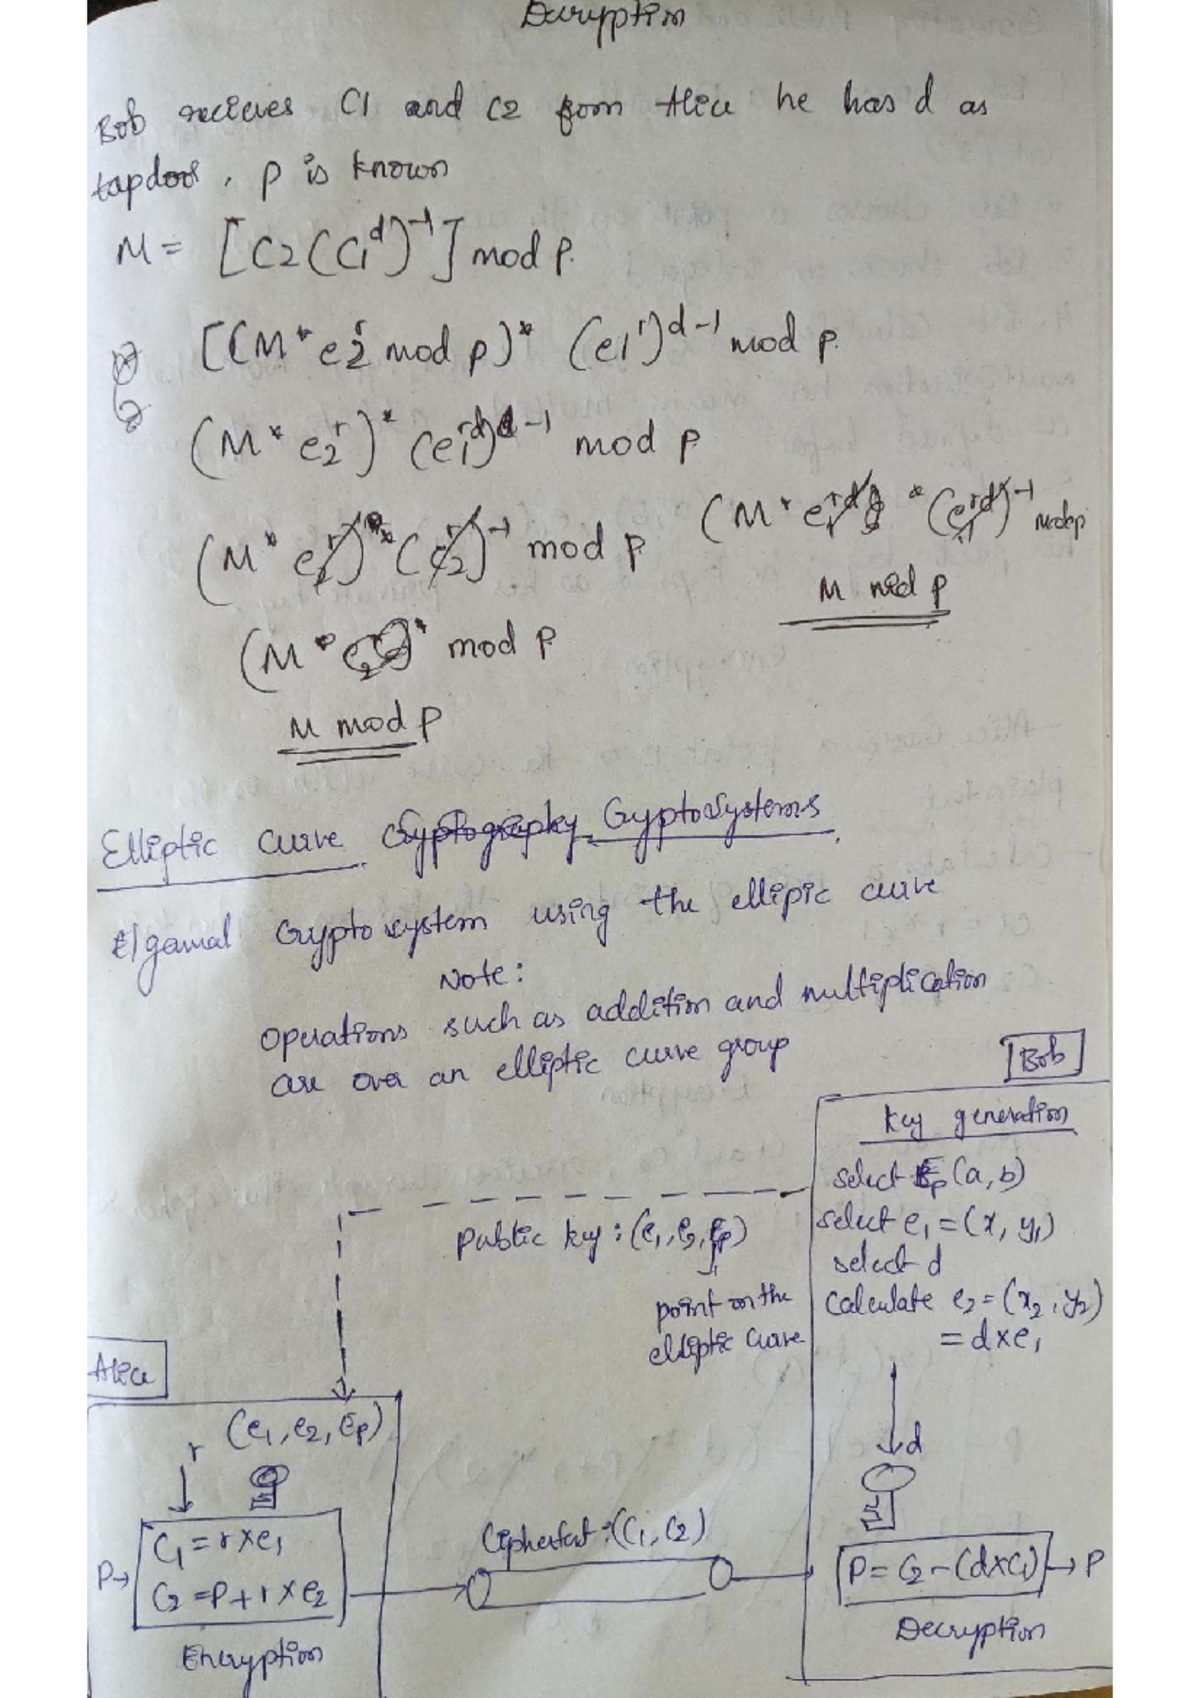 Decryption
Bob recieves C1 and C2 from Alice he has d as
tapdoor, p is known
M = [C2(C1^d)^-1] mod p.
[(M * e2^r mod p) * (e1^r)^d-1 mod p.
(M * e2^r) * (e1^rd)^-1 mod p
(M * e2^r) * (e2^r)^-1 mod p
(M * e1^rd * (e1^rd)^-1 mod p
M mod p
(M * mod p
M mod p
Elliptic curve Cryptography Cryptosystems.
Elgamal Cryptosystem using the ellipic curve
Note:
Operations such as addition and multiplication
are over an elliptic curve group
Bob
Key generation
select Ep(a, b)
select e1 = (x, y1)
select d
Calculate e2 = (x2, y2)
= d×e1
Public key : (e1, e2, Ep)
point on the
elliptic curve
d
Alice
(e1, e2, Ep)
r
P→
C1 = r×e1
C2 = P+r×e2
Encryption
Ciphertext : (C1, C2)
P = C2 - (d×C1) → P
Decryption